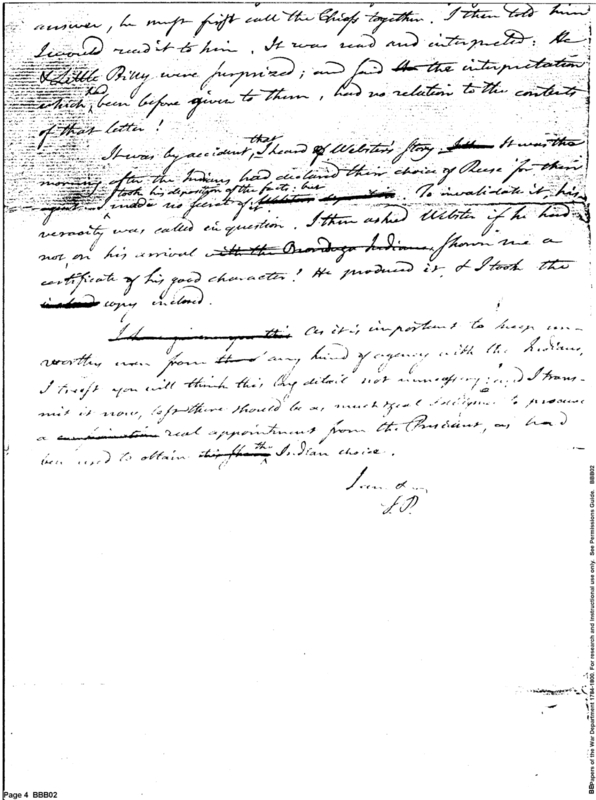 answer, he must first call the Chiefs together. I then told him
I would read it to him. It was read and interpreted: He
& Little Billy were surprized; and said the the interpretation
which had been before given to them, had no relation to the contents
of that letter!
It was by accident, that I heard of Webster's story. It was the
morning after the Indians had declared their choice of Reese for their
agent. I took his deposition of the facts; but made no secret of it. To invalidate it, his
veracity was called in question. I then asked Webster if he had
not, on his arrival with the Onondaga Indians, shown me a
certificate of his good character? He produced it, & I took the
copy inclosed.
I have given you this As it is important to keep un-
worthy men from any kind of agency with the Indians,
I trust you will think this long detail not unnecessary: and I trans-
mit it now, lest there should be as much zeal & to procure
a real appointment from the President, as had
been used to obtain the Indian choice.
I am &
T. P.
Page 4 BBB02
BBPapers of the War Department 1784-1800. For research and instructional use only. See Permissions Guide. BBB02